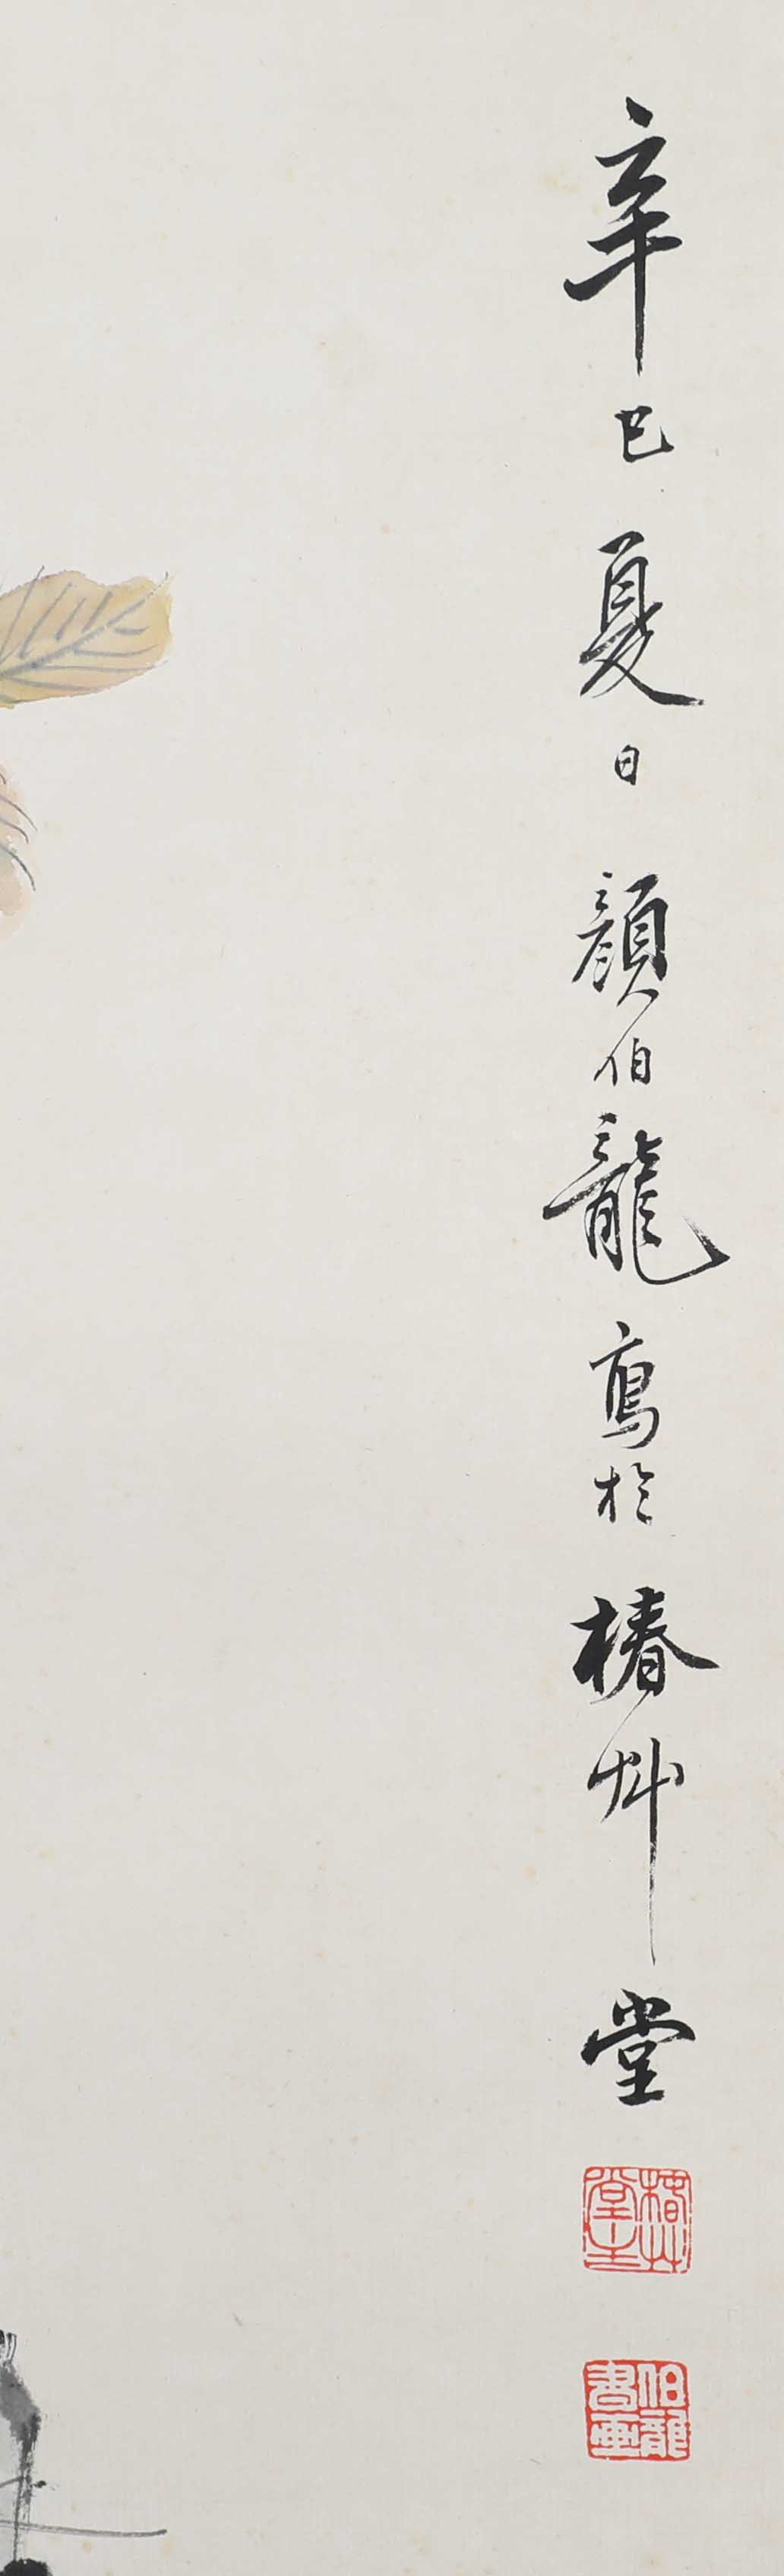 辛巳夏日顏伯龍寫於椿艸堂
椿艸堂主
伯龍書画